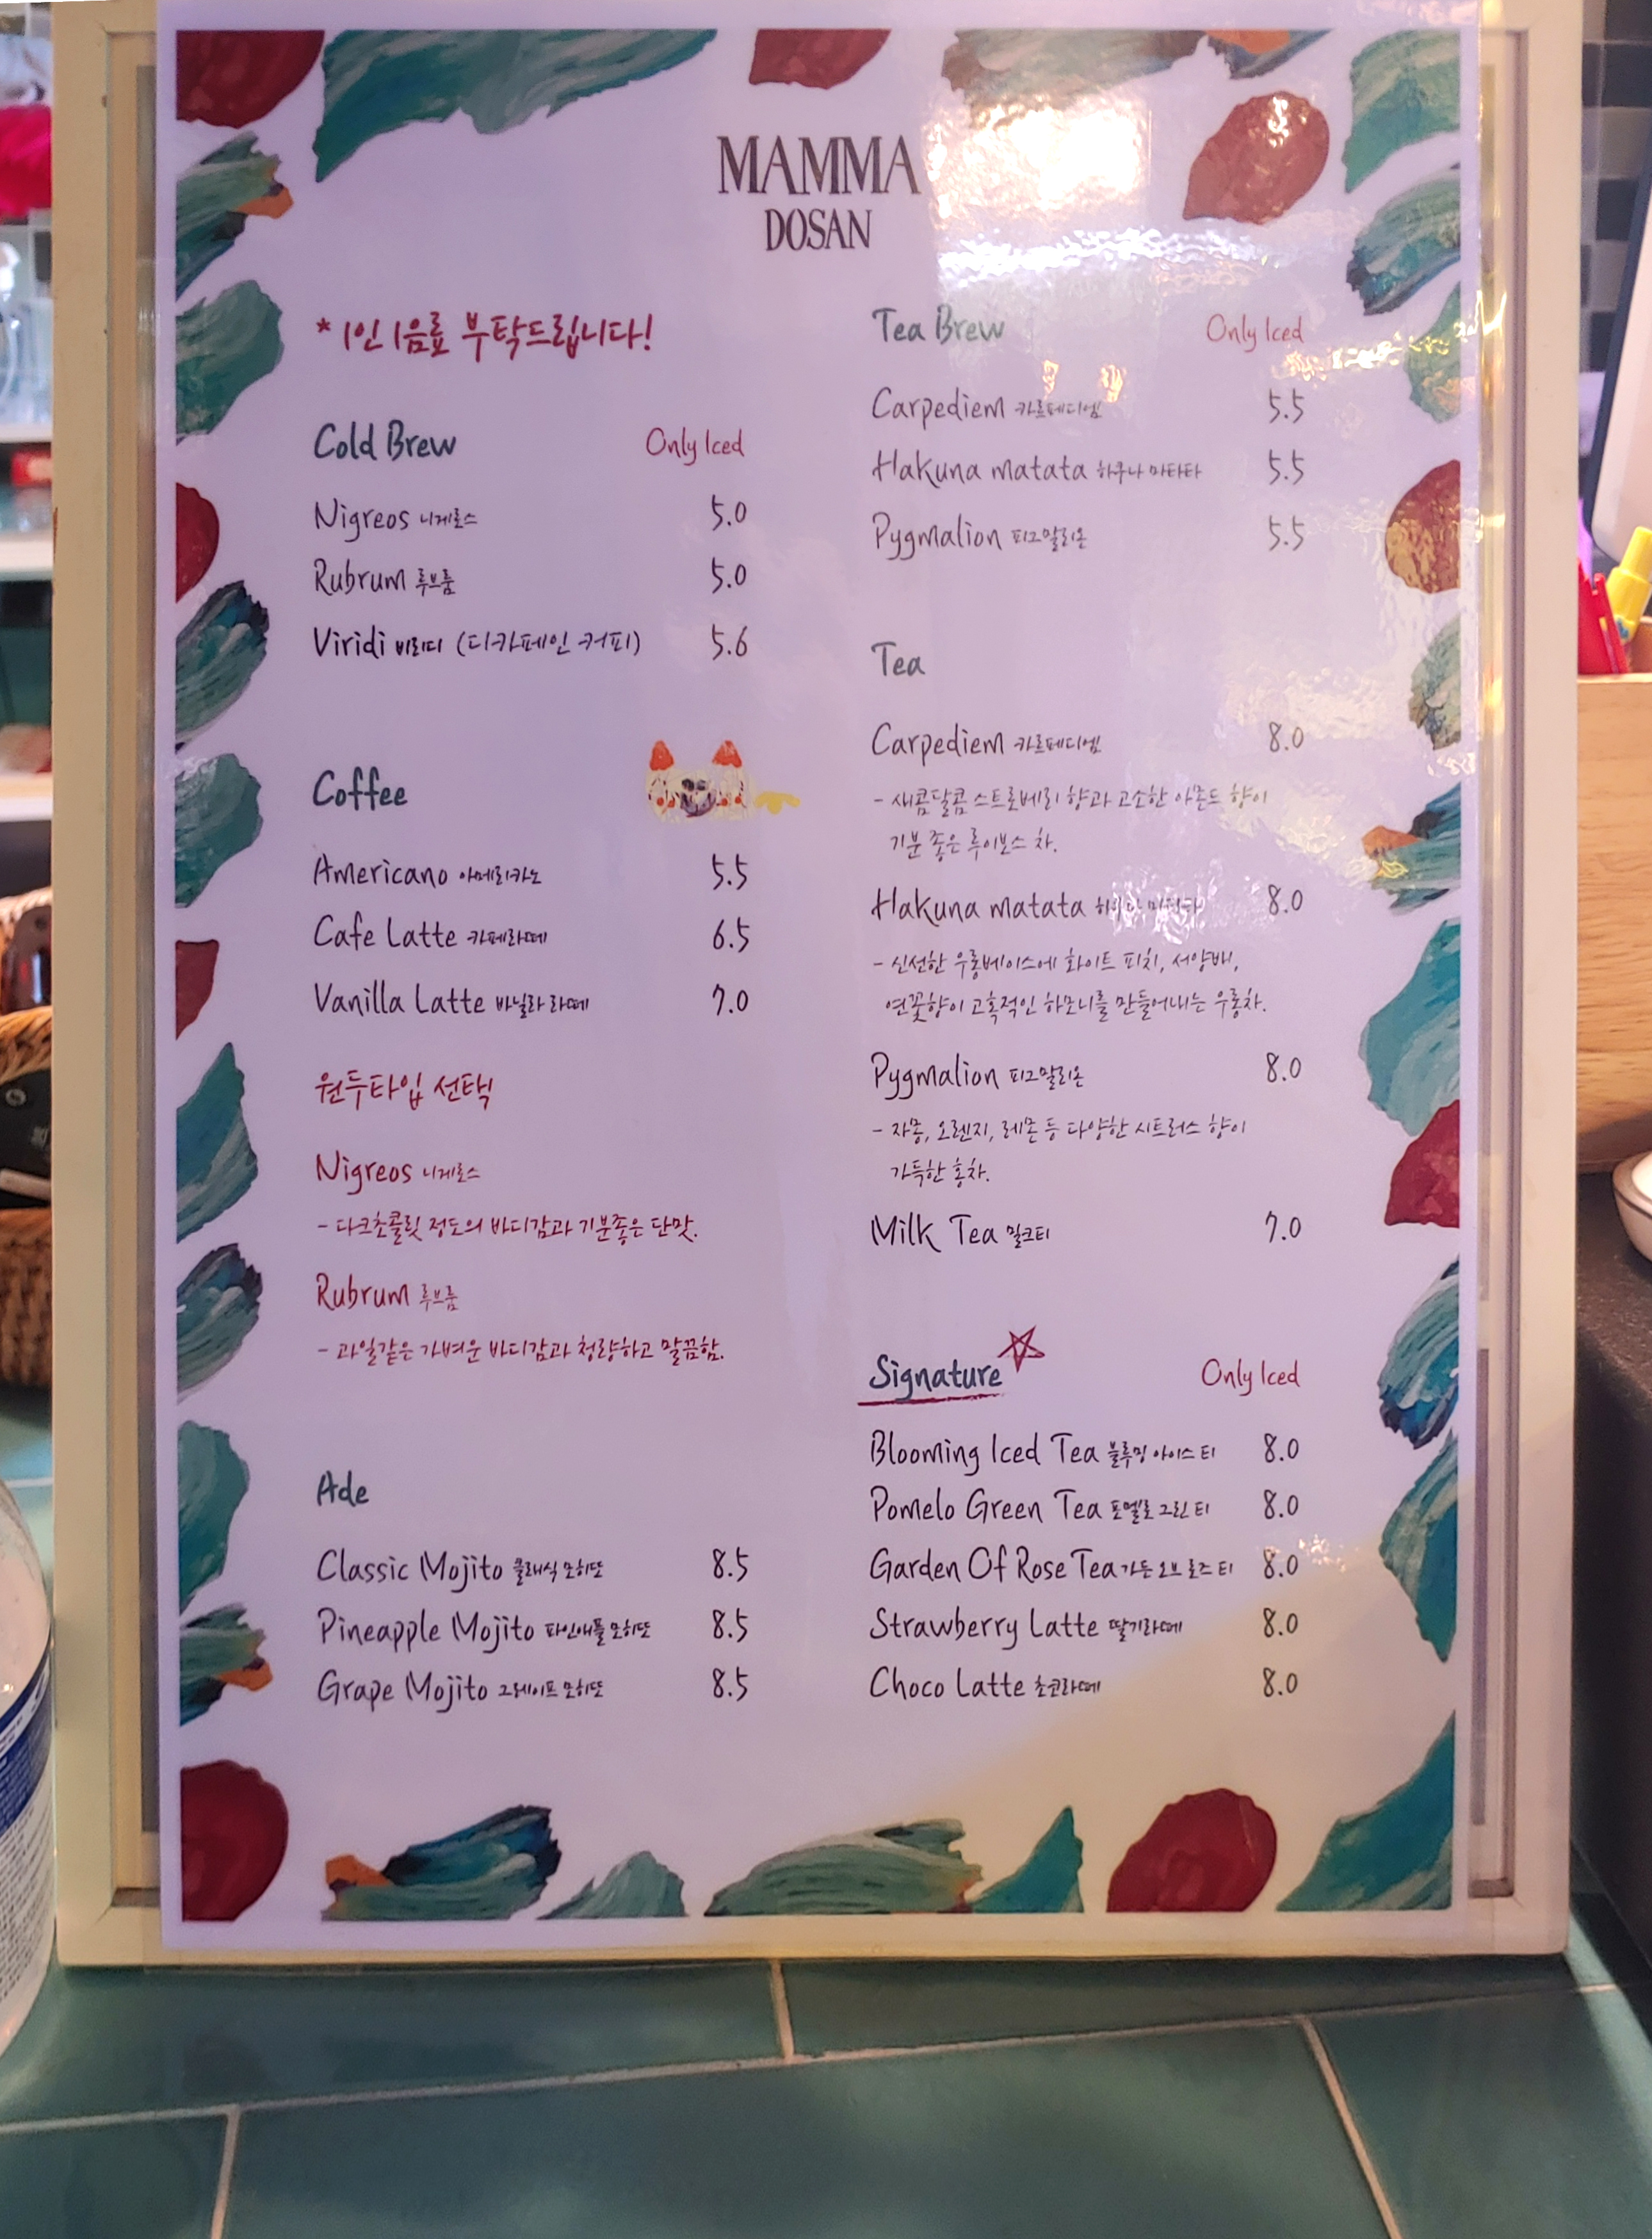 MAMMA
DOSAN
* 1인 1음료 부탁드립니다!
Cold Brew Only Iced
Nigreos 니게르스 5.0
Rubrum 루브룸 5.0
Viridi 비리디 (디카페인 커피) 5.6
Coffee
Americano 아메리카노 5.5
Cafe Latte 카페라떼 6.5
Vanilla Latte 바닐라 라떼 7.0
원두타입 선택
Nigreos 니게르스
- 다크초콜릿 정도의 바디감과 기분좋은 단맛.
Rubrum 루브룸
- 과일같은 가벼운 바디감과 청량하고 말끔함.
Ade
Classic Mojito 클래식 모히또 8.5
Pineapple Mojito 파인애플 모히또 8.5
Grape Mojito 그레이프 모히또 8.5
Tea Brew Only Iced
Carpediem 카르페디엠 5.5
Hakuna matata 하쿠나 마타타 5.5
Pygmalion 피그말리온 5.5
Tea
Carpediem 카르페디엠 8.0
- 새콤달콤 스트로베리 향과 고소한 아몬드 향이
기분 좋은 루이보스 차.
Hakuna matata 8.0
- 신선한 우롱베이스에 화이트 피치, 서양배,
연꽃향이 고혹적인 하모니를 만들어내는 우롱차.
Pygmalion 피그말리온 8.0
- 자몽, 오렌지, 레몬 등 다양한 시트러스 향이
가득한 홍차.
Milk Tea 밀크티 7.0
Signature Only Iced
Blooming Iced Tea 블루밍 아이스 티 8.0
Pomelo Green Tea 포멜로 그린 티 8.0
Garden Of Rose Tea 가든 오브 로즈 티 8.0
Strawberry Latte 딸기라떼 8.0
Choco Latte 초코라떼 8.0